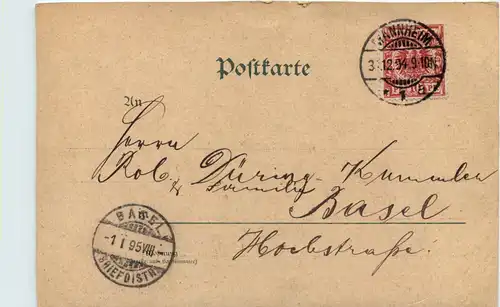 Postkarte
MANNHEIM
12.94.9-10N
1 a
An
Herrn
Rob. Düring-Kummler
& Familie
Basel
Hochstraße.
BASEL
-1 I 95 VIII
BRIEFDISTR.